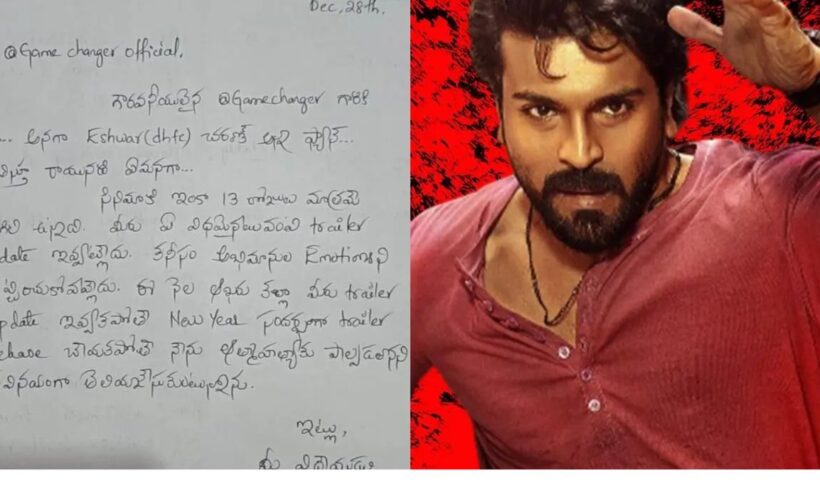 Dec, 28th.
@Game changer official,
గౌరవనీయులైన @Gamechanger గారికి
... అనగా Eshwar(dhfc) చరణ్ అన్న ఫ్యాన్...
రాయునది ఏమనగా...
సినిమాకి ఇంకా 13 రోజులు మాత్రమే
ఉన్నది. మీరు ఏ విధమైనటువంటి trailer
date ఇవ్వట్లేదు. కనీసం అభిమానుల Emotionsని
పట్టించుకోవట్లేదు. ఈ నెల ఆఖరు కల్లా మీరు trailer
pdate ఇవ్వకపోతే New Year సందర్భంగా trailer
చేయకపోతే నేను ఆత్మహత్యకు పాల్పడతానని
వినయంగా తెలియజేసుకుంటున్నాను.
ఇట్లు,
మీ విధేయుడు